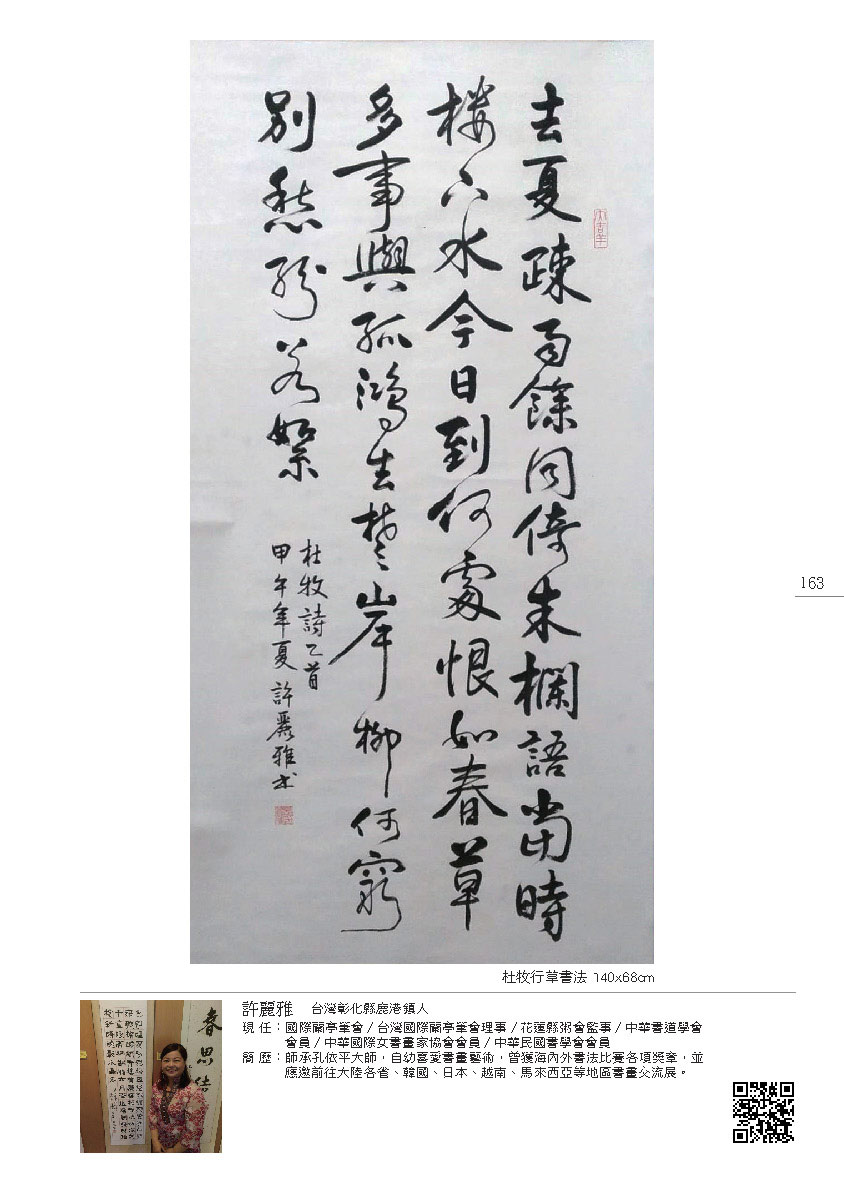 大吉羊
去夏疎雨餘同倚朱欄語當時
樓下水今日到何處恨如春草
多事與孤鴻去楚岸柳何窮
別愁紛若絮
杜牧詩乙首
甲午年夏 許麗雅书
163
杜牧行草書法 140x68cm
許麗雅 台灣彰化縣鹿港鎮人
現 任:國際蘭亭筆會/台灣國際蘭亭筆會理事/花蓮縣粥會監事/中華書道學會
會員/中華國際女書畫家協會會員/中華民國書學會會員
簡 歷:師承孔依平大師,自幼喜愛書畫藝術,曾獲海內外書法比賽各項獎奎,並
應邀前往大陸各省、韓國、日本、越南、馬來西亞等地區書畫交流展。
春思